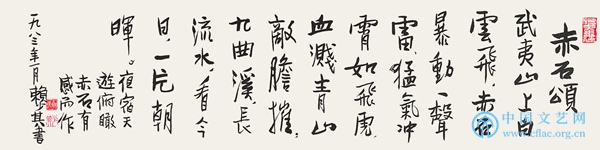 赤石頌
武夷山上白
雲飛,赤石
暴動一聲
雷,猛氣冲
霄如飛虎,
血濺青山
敵膽摧;
九曲溪,長
流水,看今
日,一片朝
暉。
夜宿天
遊俯瞰
赤石有
感而作
一九八三年一月 賴少其書
中国文艺网
www.cflac.org.cn